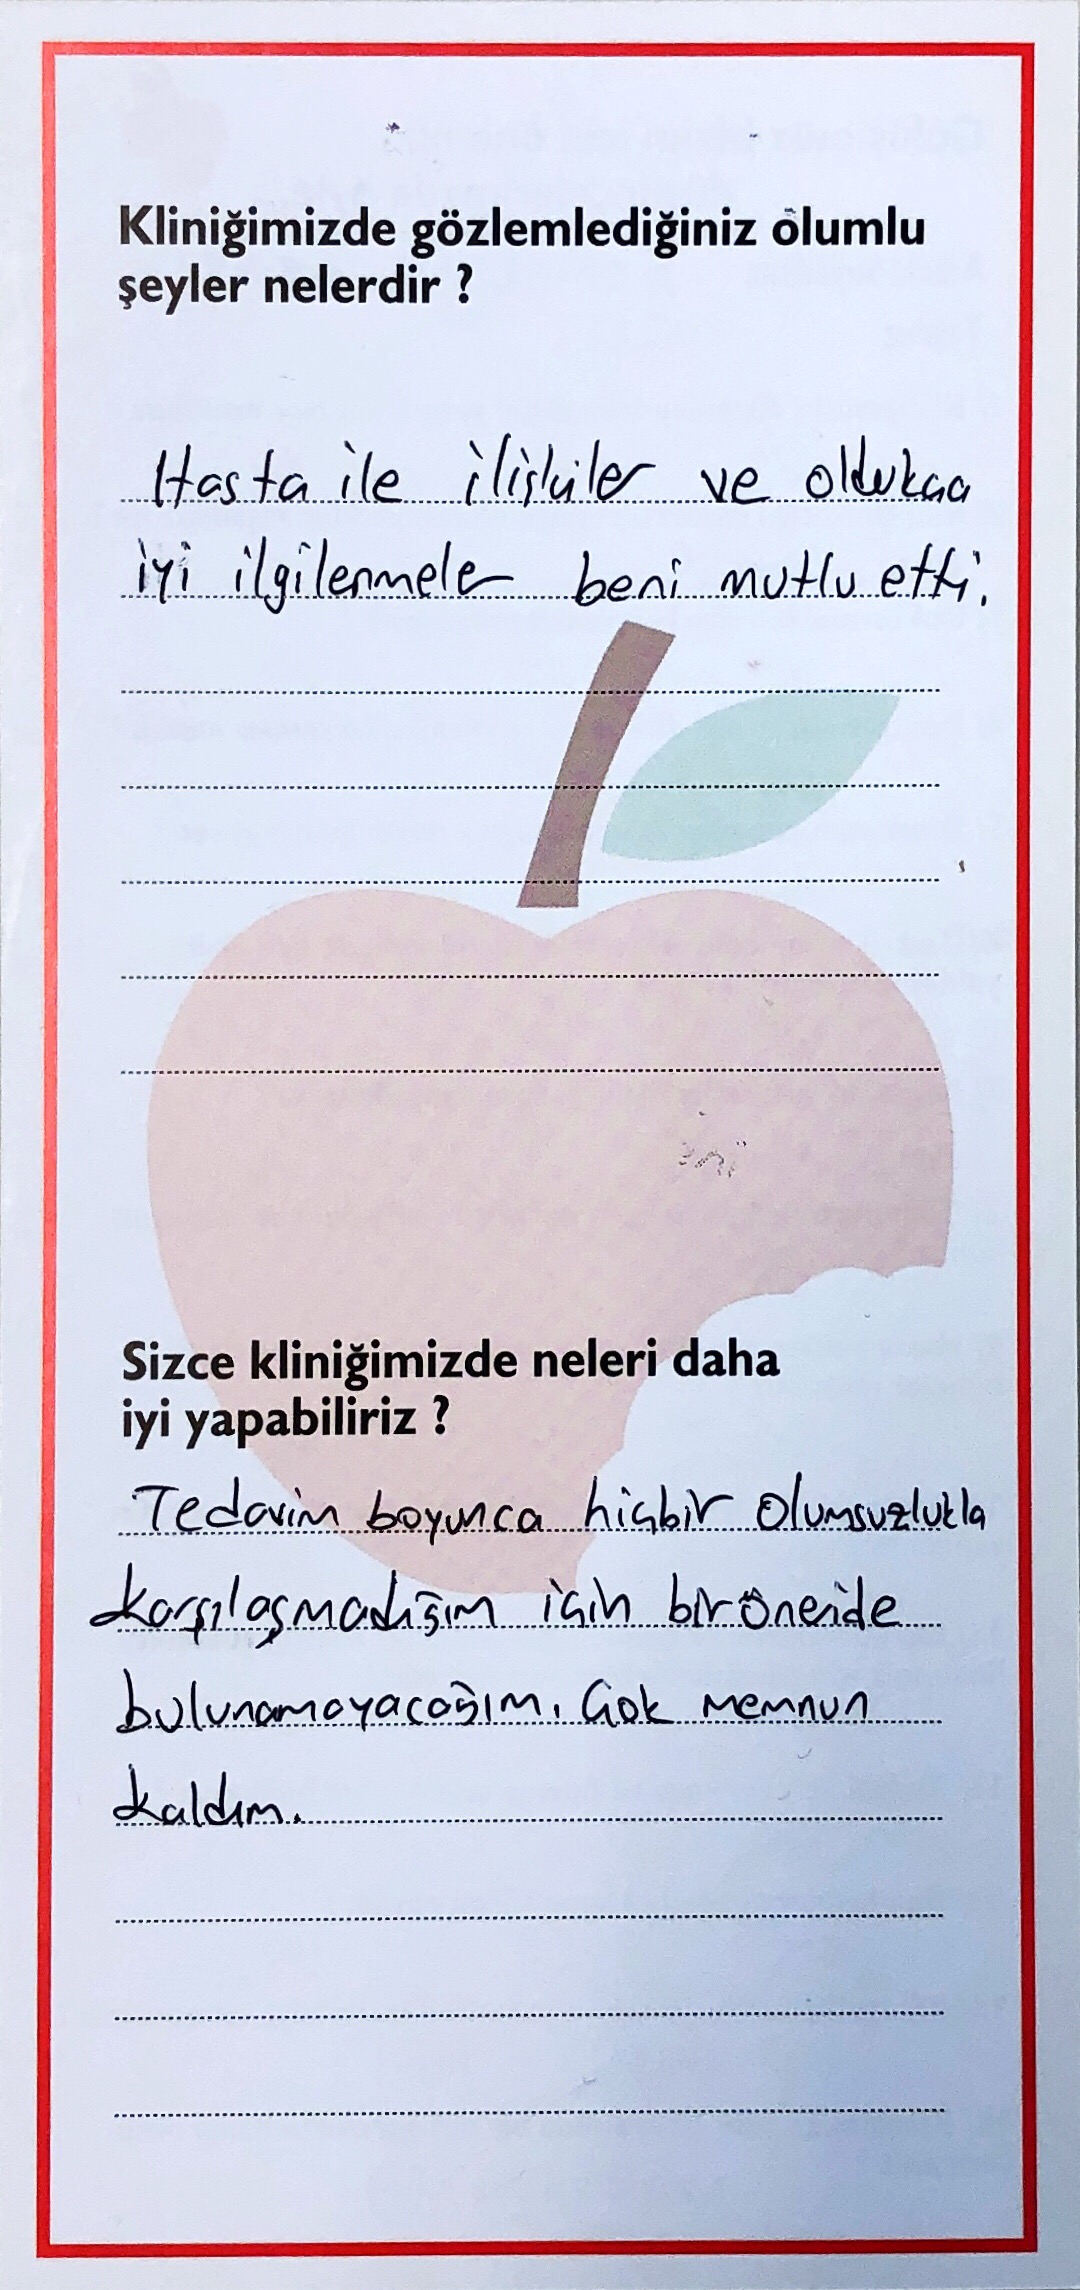 Kliniğimizde gözlemlediğiniz olumlu
şeyler nelerdir ?
Hasta ile ilişkiler ve oldukça
iyi ilgilenmeler beni mutlu etti.
Sizce kliniğimizde neleri daha
iyi yapabiliriz ?
Tedavim boyunca hiçbir olumsuzlukla
karşılaşmadığım için bir öneride
bulunamayacağım. Çok memnun
kaldım.